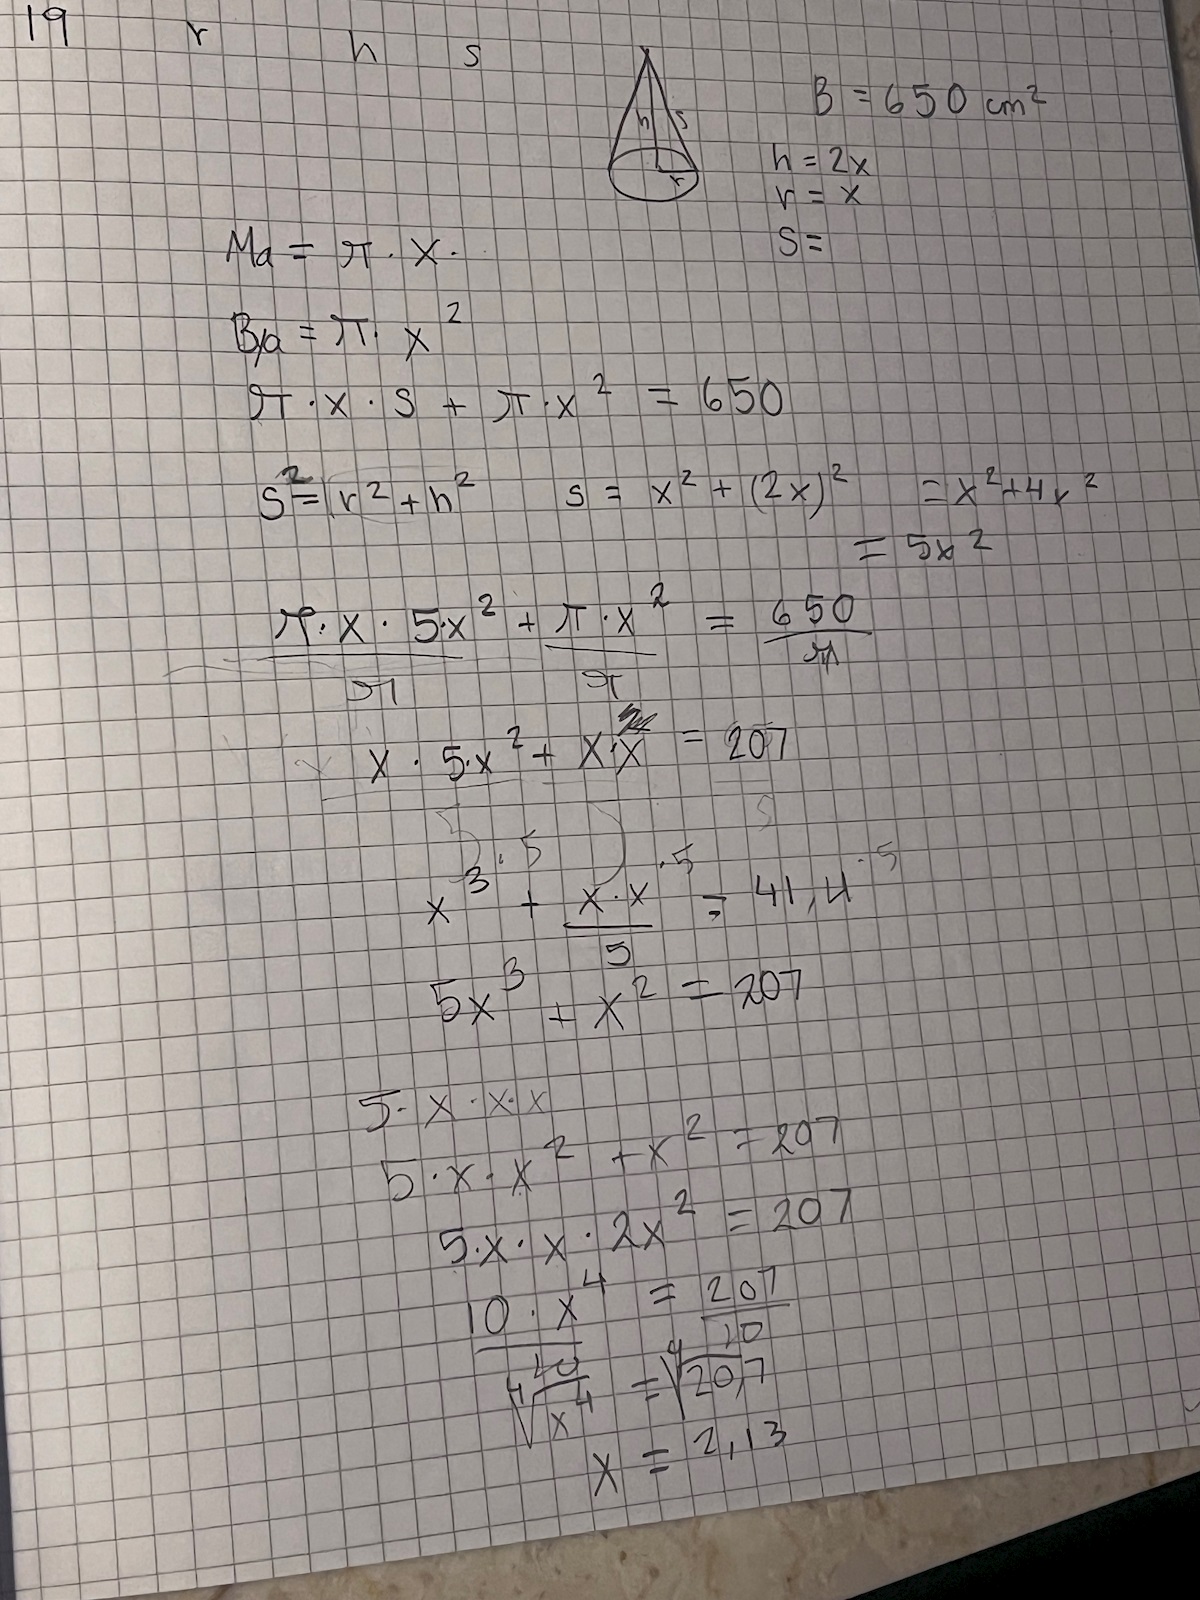 19 r h s
h s r
B = 650 cm²
h = 2x
r = x
S =
Ma = π · x ·
Ba = π · x²
π · x · s + π · x² = 650
S² = r² + h² s = x² + (2x)² = x² + 4x²
= 5x²
π · x · 5·x² + π · x² = 650
π π π
x · 5·x² + x·x = 207
x³ ·5 + x·x ·5 = 41,4 ·5
5
5x³ + x² = 207
5· x · x· x
5 · x · x² + x² = 207
5·x · x · 2x² = 207
10 · x⁴ = 207
10 10
⁴√x⁴ = ⁴√20,7
x = 2,13